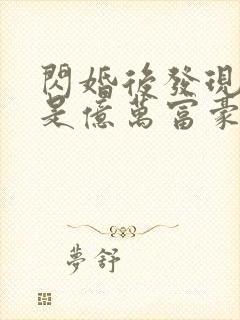 閃婚後發現
是億萬富豪
夢舒